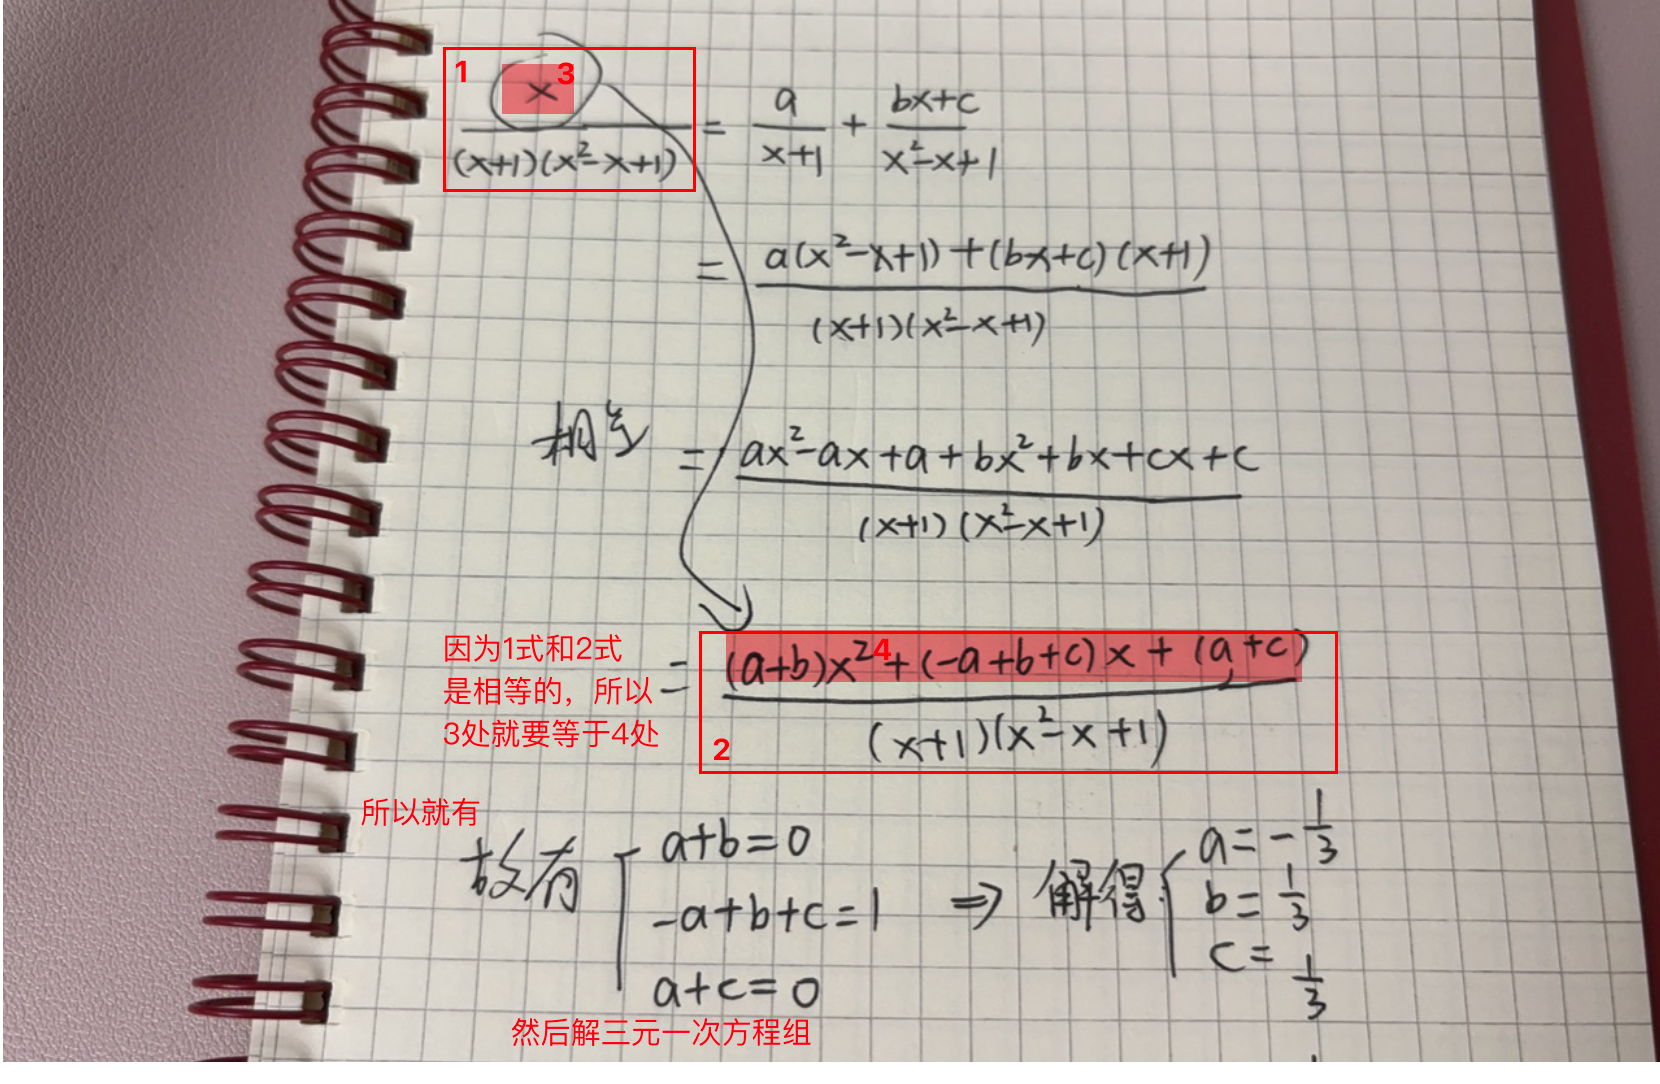 1 x 3 / (x+1)(x²-x+1) = a / x+1 + bx+c / x²-x+1
= a(x²-x+1)+(bx+c)(x+1) / (x+1)(x²-x+1)
相等 = ax²-ax+a+bx²+bx+cx+c / (x+1)(x²-x+1)
因为1式和2式
是相等的，所以
3处就要等于4处
= (a+b)x² 4 +(-a+b+c)x+(a+c) / (x+1)(x²-x+1) 2
所以就有
故有 { a+b=0
-a+b+c=1
a+c=0
⇒ 解得 { a=-1/3
b=1/3
c=1/3
然后解三元一次方程组